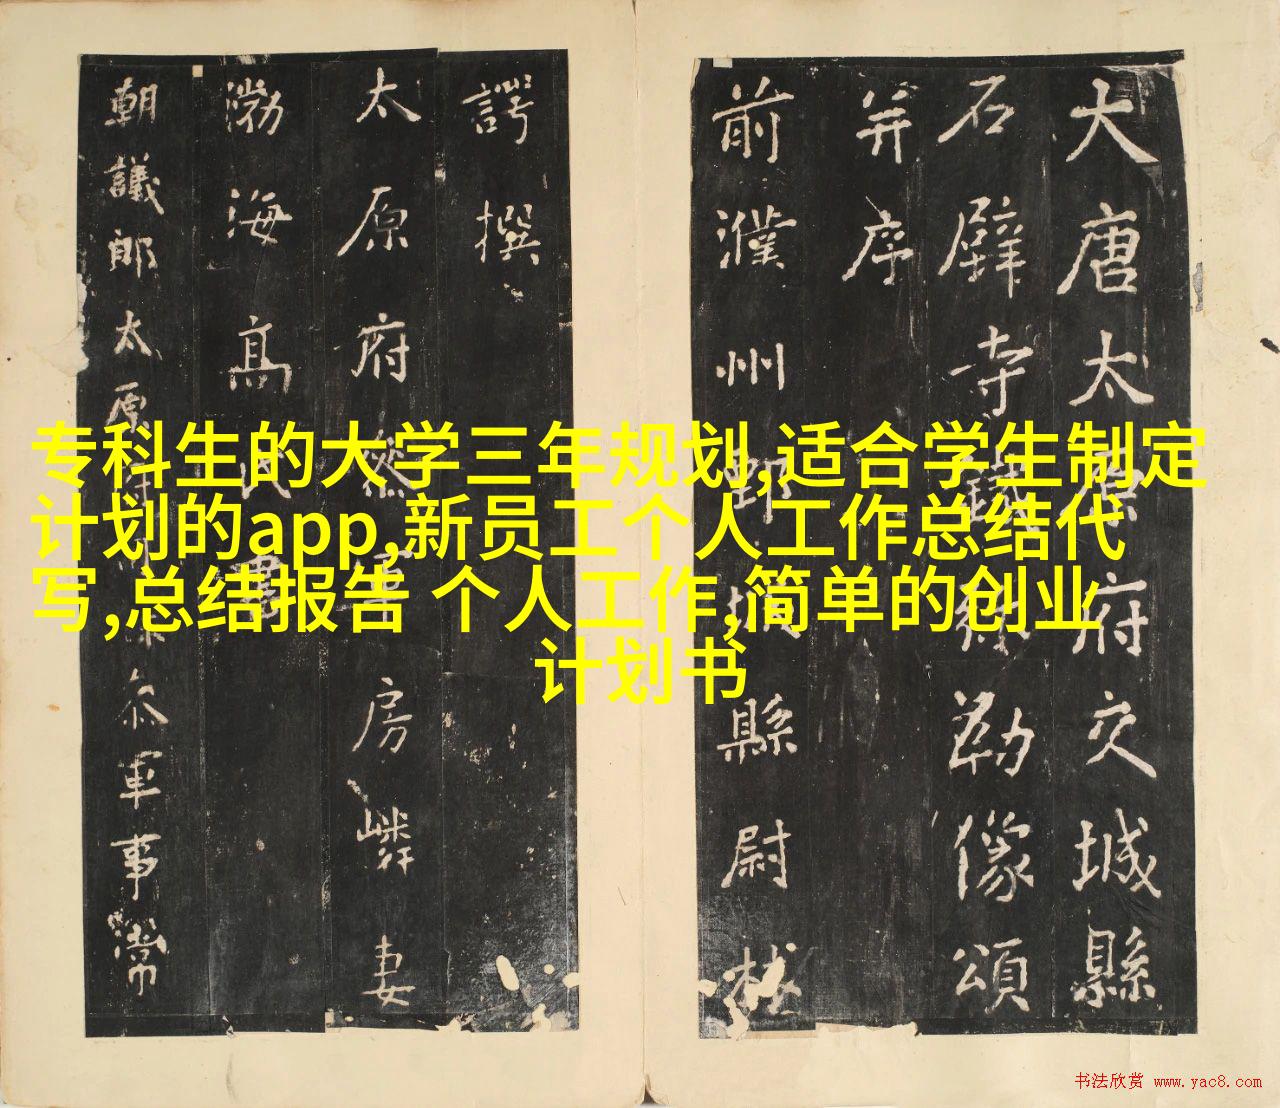 大唐太原府交城縣
石壁寺鐵彌勒像頌
并序
前濮州鄄城縣尉林
諤撰
太原府叅軍房嶙妻
渤海高氏書
朝議郎太原府司錄叅軍事常
专科生的大学三年规划,适合学生制定
计划的app,新员工个人工作总结代
写,总结报告 个人工作,简单的创业
计划书
书法欣赏 www.yac8.com